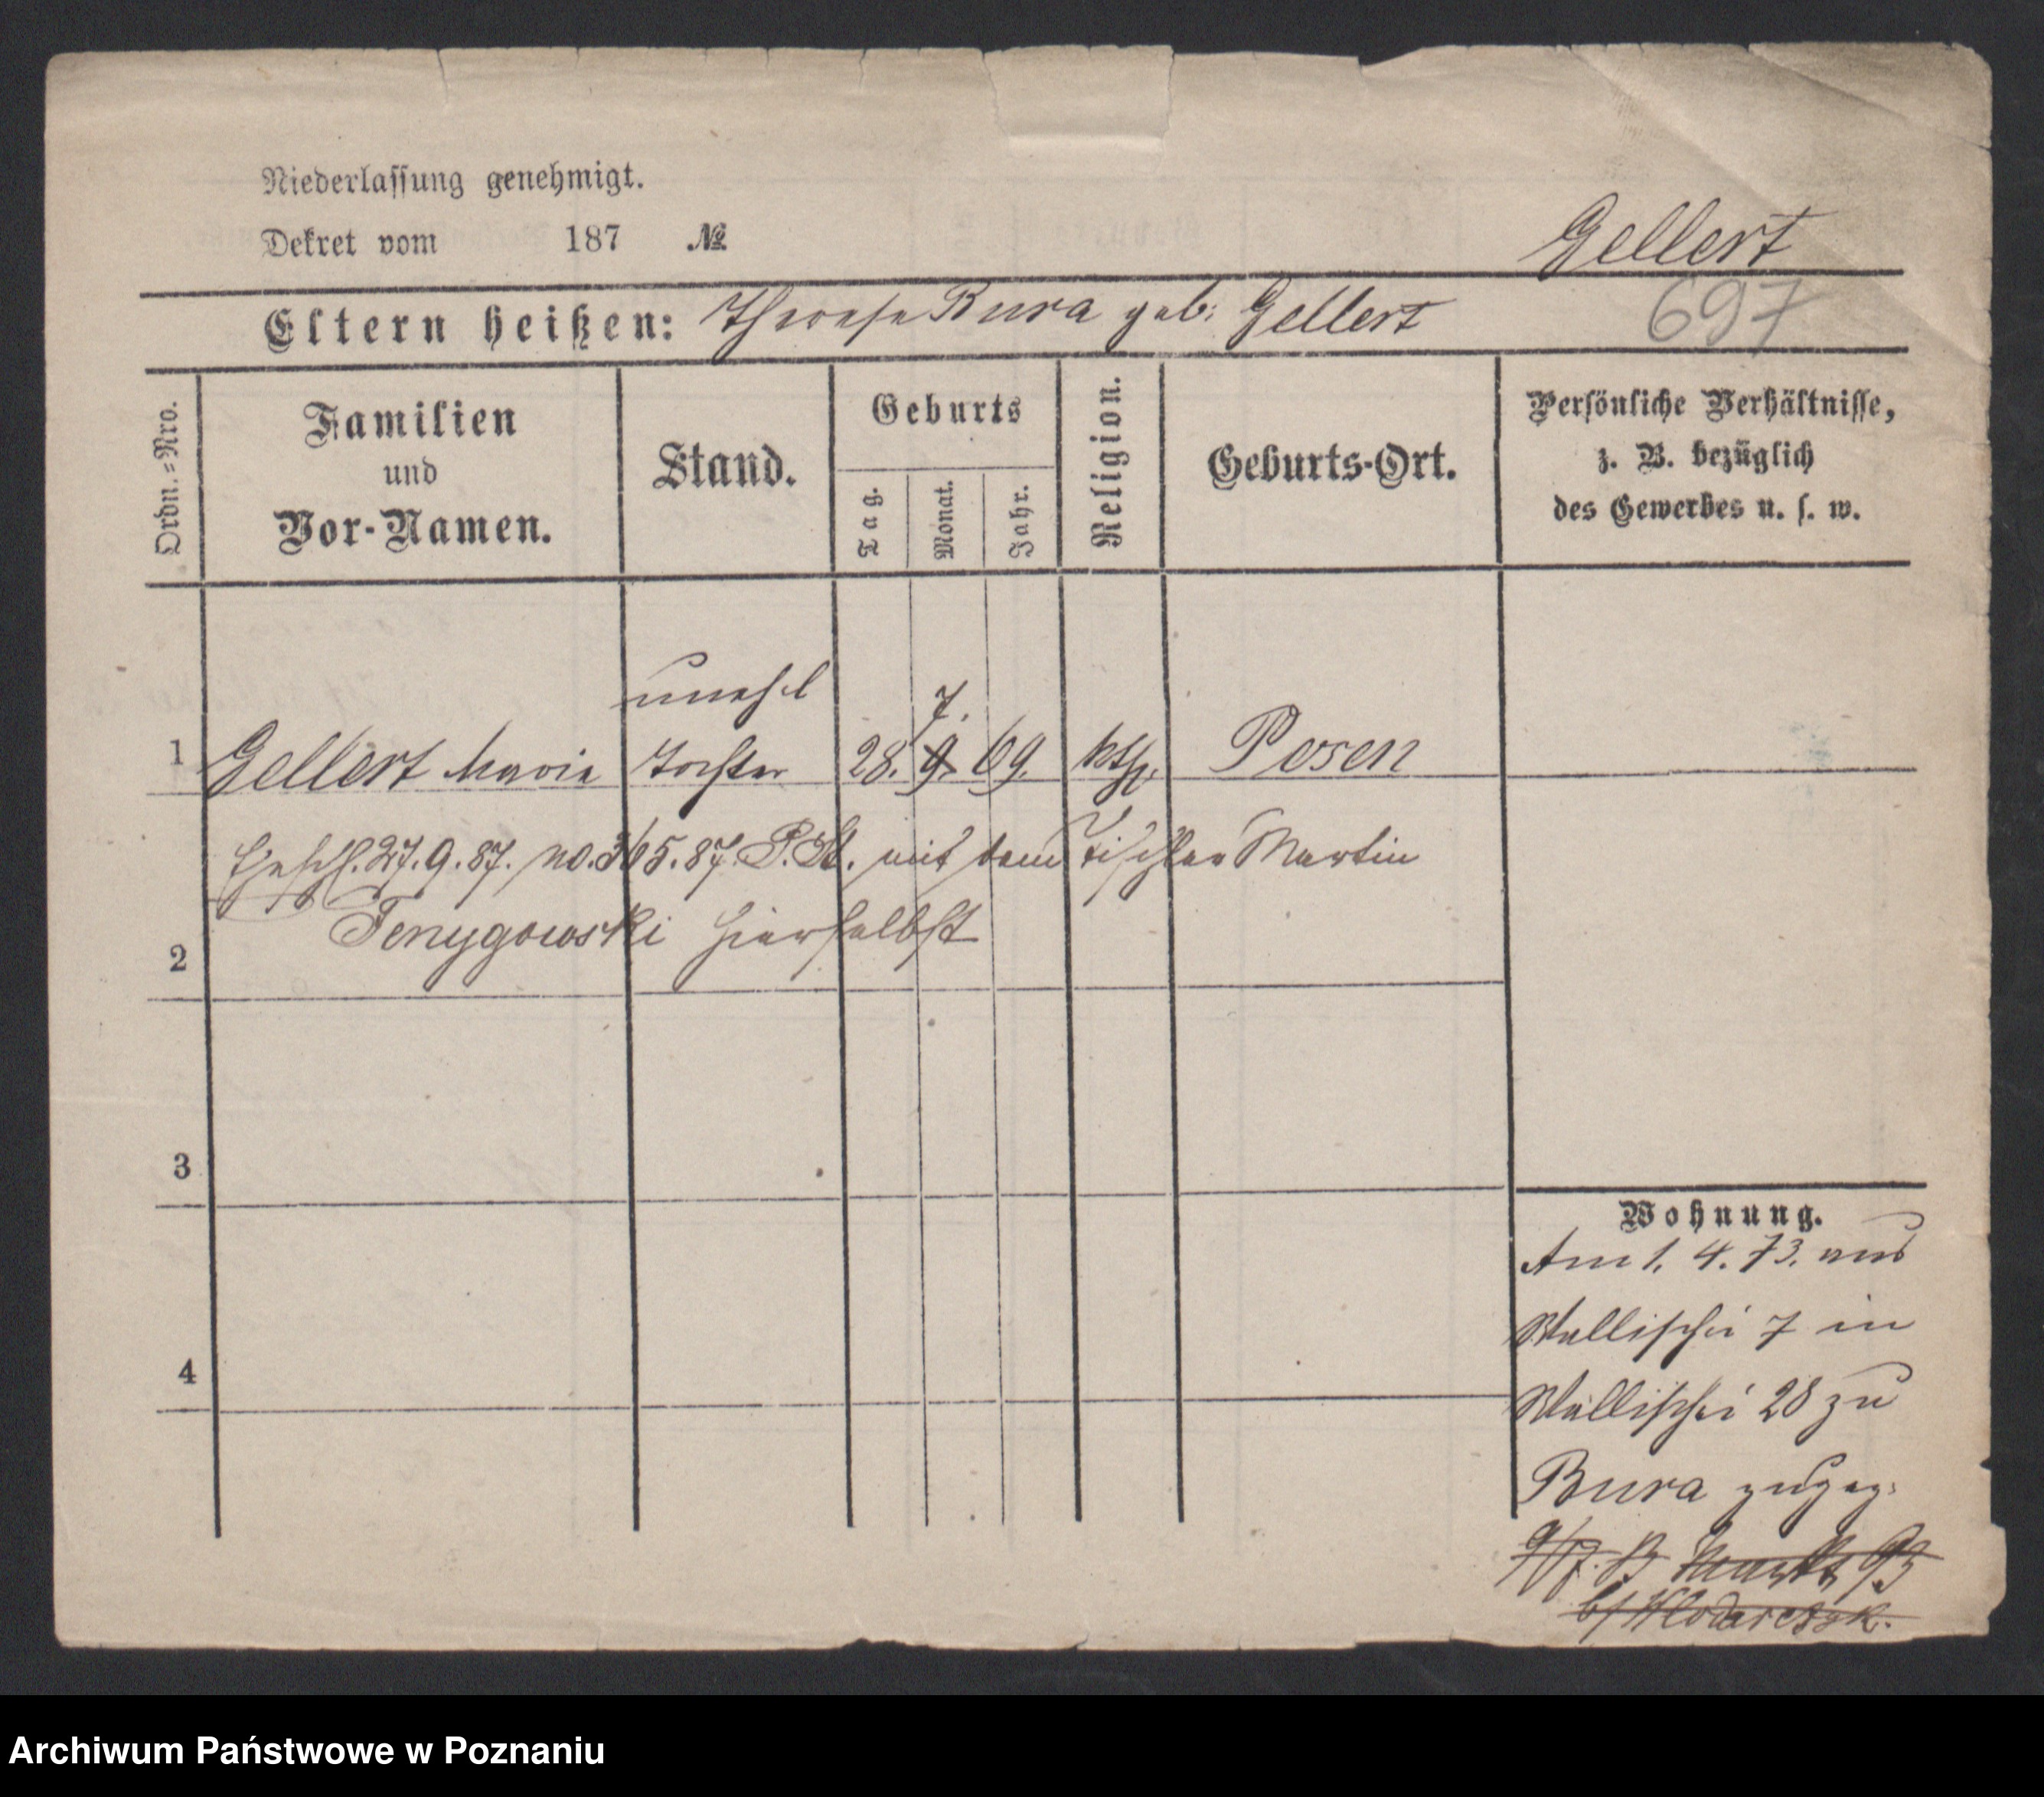 Niederlassung genehmigt.
Dekret vom 187 №
Gellert
Eltern heißen: Therese Bura geb: Gellert
697
Ordn.=Nro.
Familien
und
Vor-Namen.
Stand.
Geburts
Tag.
Monat.
Jahr.
Religion.
Geburts-Ort.
Persönliche Verhältnisse,
z. B. bezüglich
des Gewerbes u. s. w.
unehl
7.
1 Gellert Maria Tochter 28. 9. 69. kth. Posen
Ehesch. 27.9.87. No. 365.87. P.St. mit dem Tischler Martin
2 hierselbst
3
4
Wohnung.
Am 1. 4. 73. aus
Wallischei 7 in
Wallischei 28 zu
Bura zugez.
93
b/ Wlodarczyk.
Archiwum Państwowe w Poznaniu